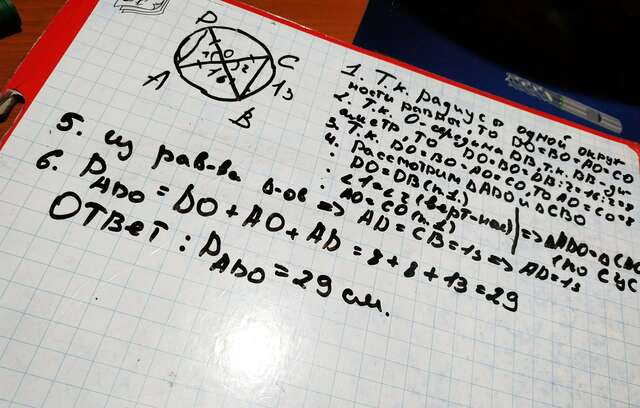 D
O
C
1
2
16
A
13
B
1. Т.к. радиусы одной окруж
ности равны, то DO=BO=AO=CO
2. Т.к. O-середина DB, т.к. DB-ди
аметр, то DO=BO=DB:2=16:2=8
3. Т.к. DO=BO=AO=CO, то AO=CO=8
4. Рассмотрим ΔADO и ΔCBO
DO=OB (п.1)
∠1=∠2 (верт-ные) => ΔADO=Δ
AO=CO (п.1) по СУС
5. из рав-ва Δ-ов => AD=CB=13 => AD=13
6. P ADO = DO+AO+AD=8+8+13=29
Ответ: P ADO = 29 см.